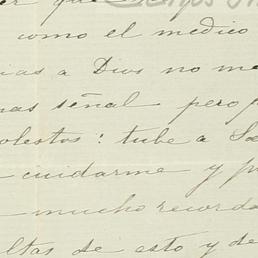 que
como el medico
ias a Dios no me
mas señal pero
olestos: tube a
cuidarme y
mucho recorda
ltas de esto y de